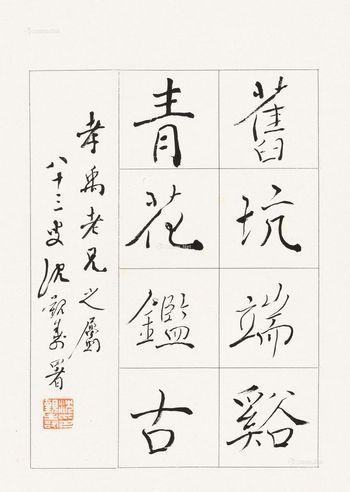 舊坑端谿
青花鑑古
孝禹老兄之屬
八十三叟沈觀壽署